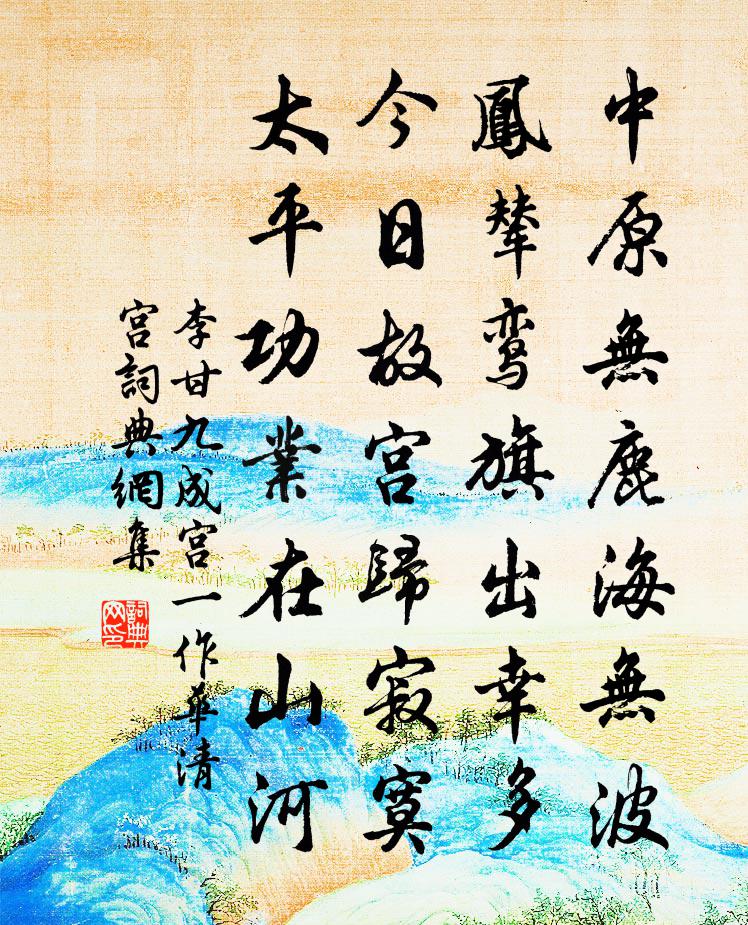 中原無鹿海無波
鳳輦鸾旗出幸多
今日故宫歸寂寞
太平功業在山河
李甘九成宮一作華清
宮詞典網集
詞典网印